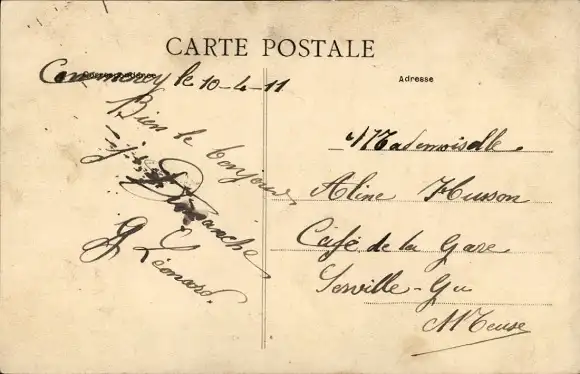 CARTE POSTALE
Commercy le 10-4-11
Adresse
Bien le bonjour
Dimanche
G Léonard.
Mademoiselle
Aline Husson
Café de la Gare
Meuse